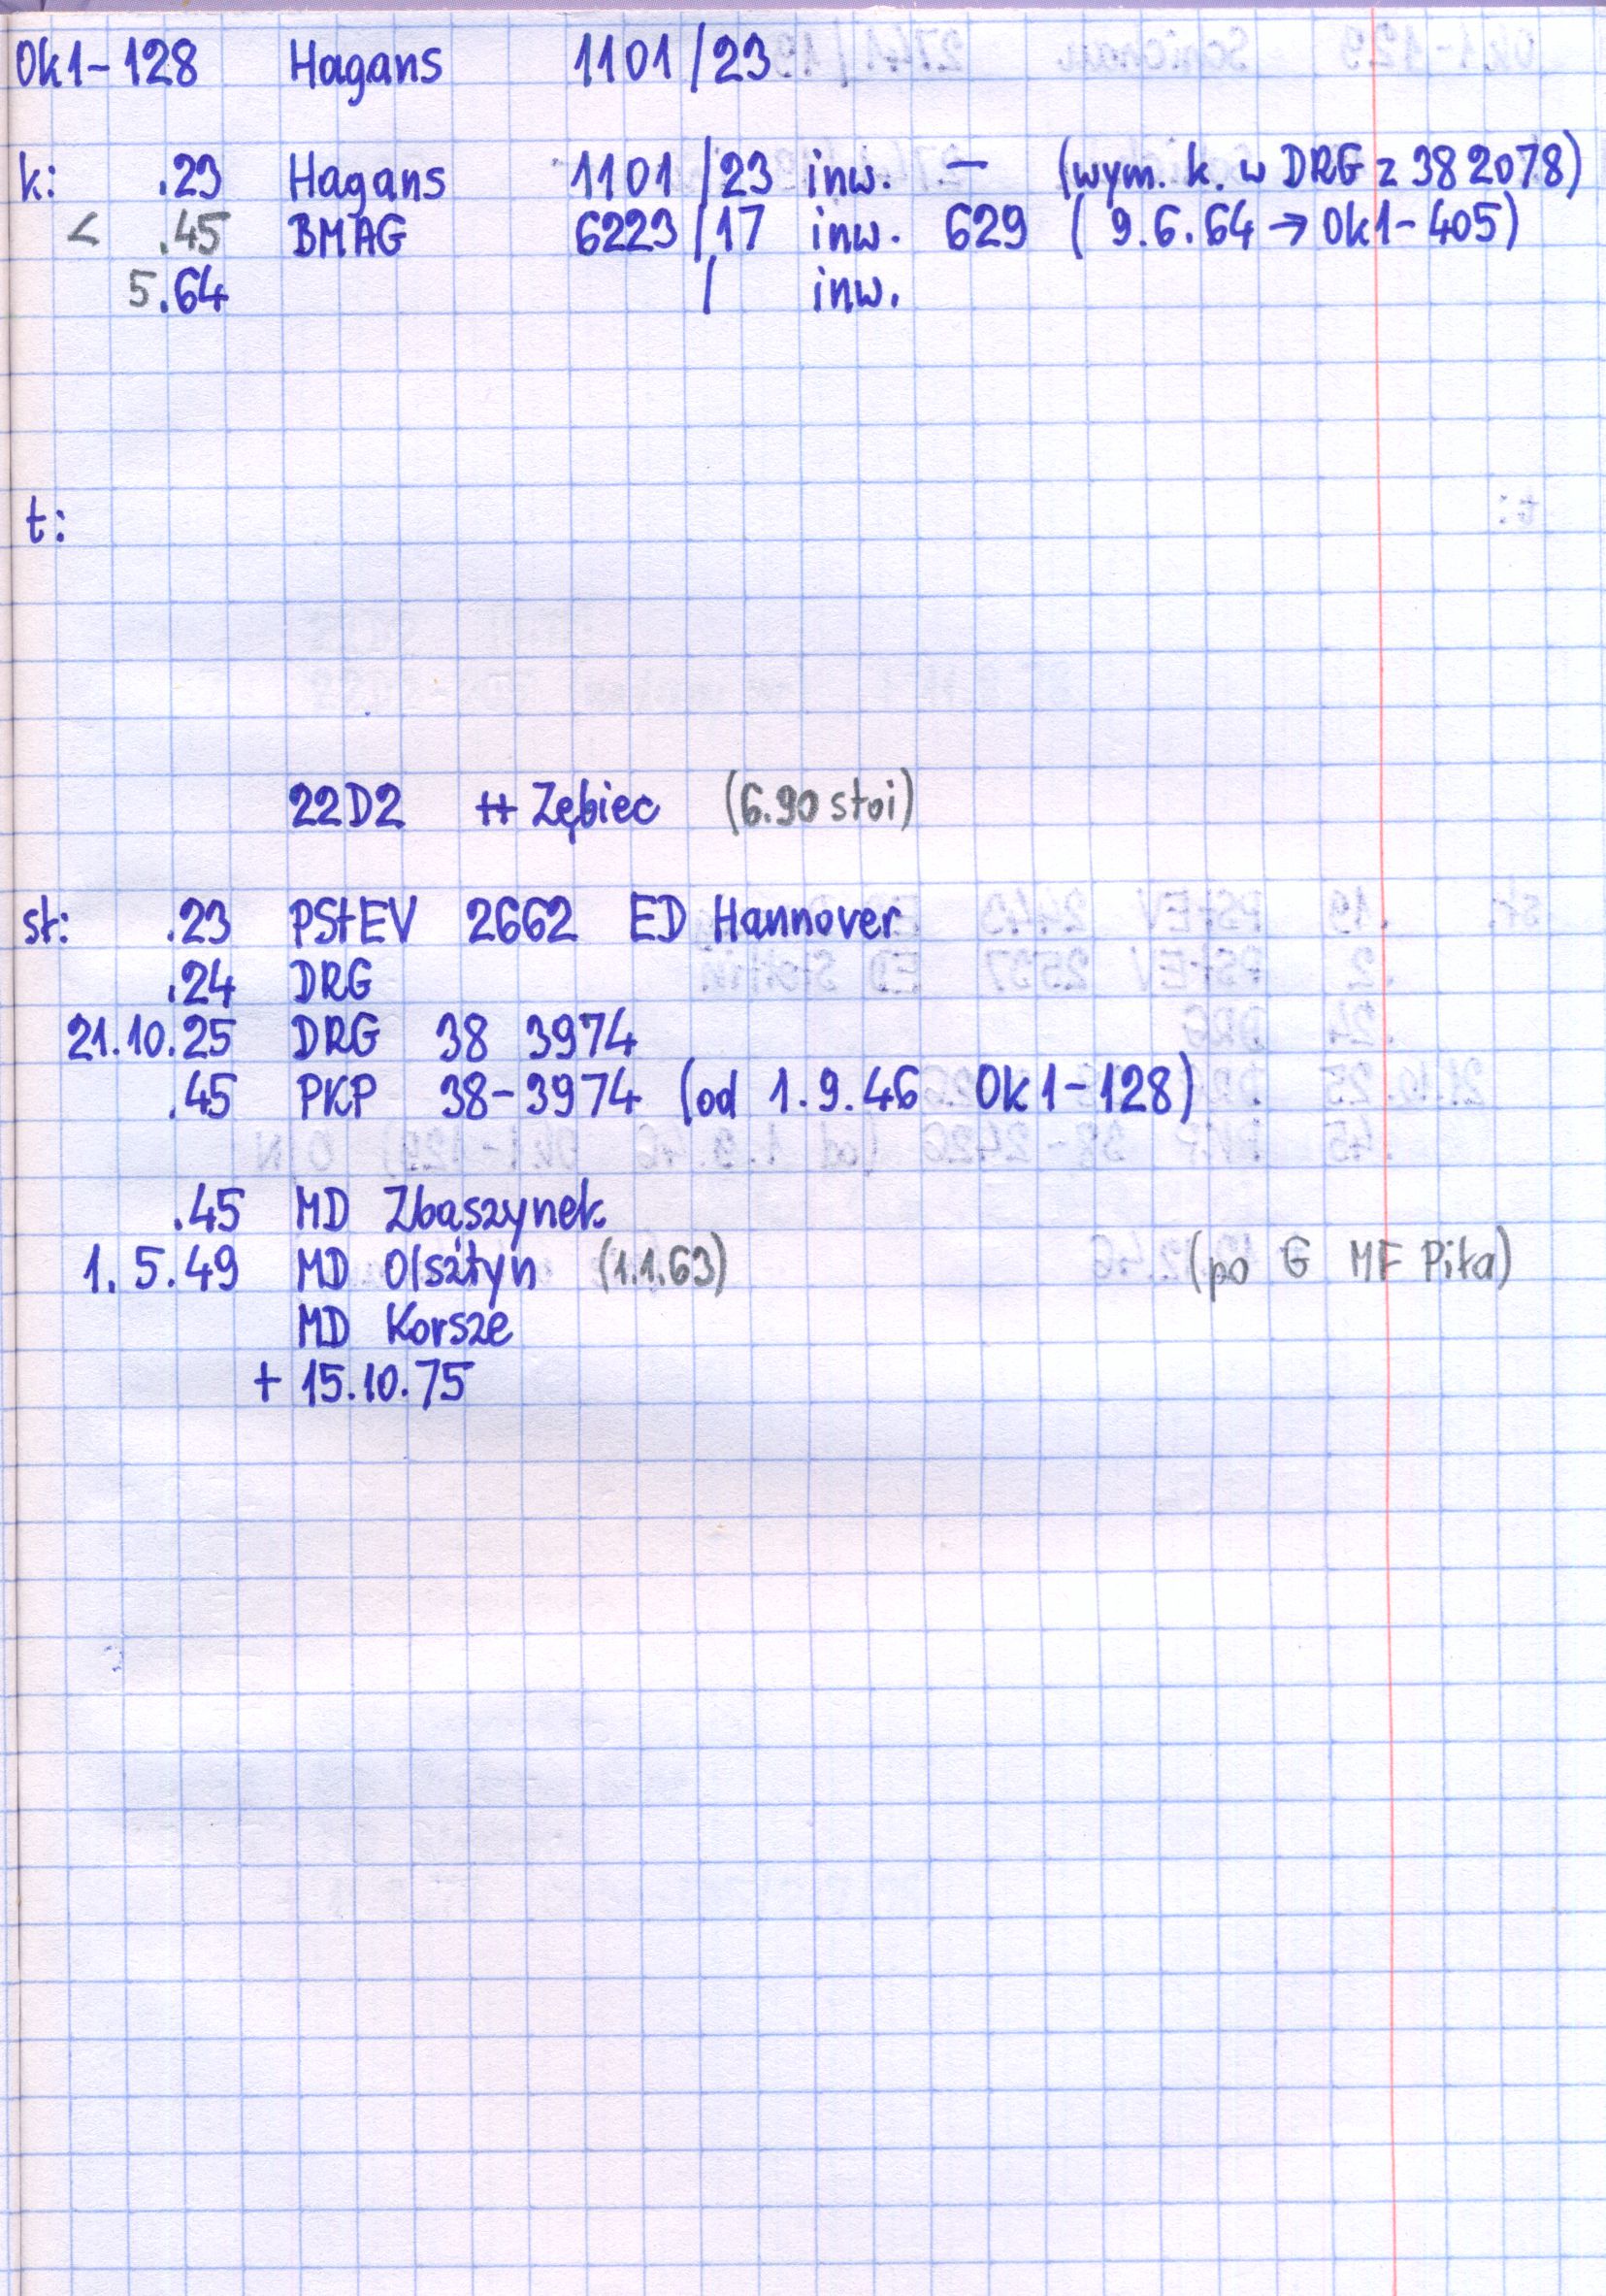 Ok1-128 Hagans 1101/23
k: .23 Hagans 1101/23 inw. — (wym. k. w DRG z 38 2078)
< .45 BMAG 6223/17 inw. 629 (9.6.64 → Ok1-405)
5.64 / inw.
t:
22D2 ++ Zębiec (6.90 stoi)
st: .23 PStEV 2662 ED Hannover
.24 DRG
21.10.25 DRG 38 3974
.45 PKP 38-3974 (od 1.9.46 Ok1-128)
.45 MD Zbąszynek
1.5.49 MD Olsztyn (1.1.63) (po G MF Piła)
MD Korsze
+ 15.10.75